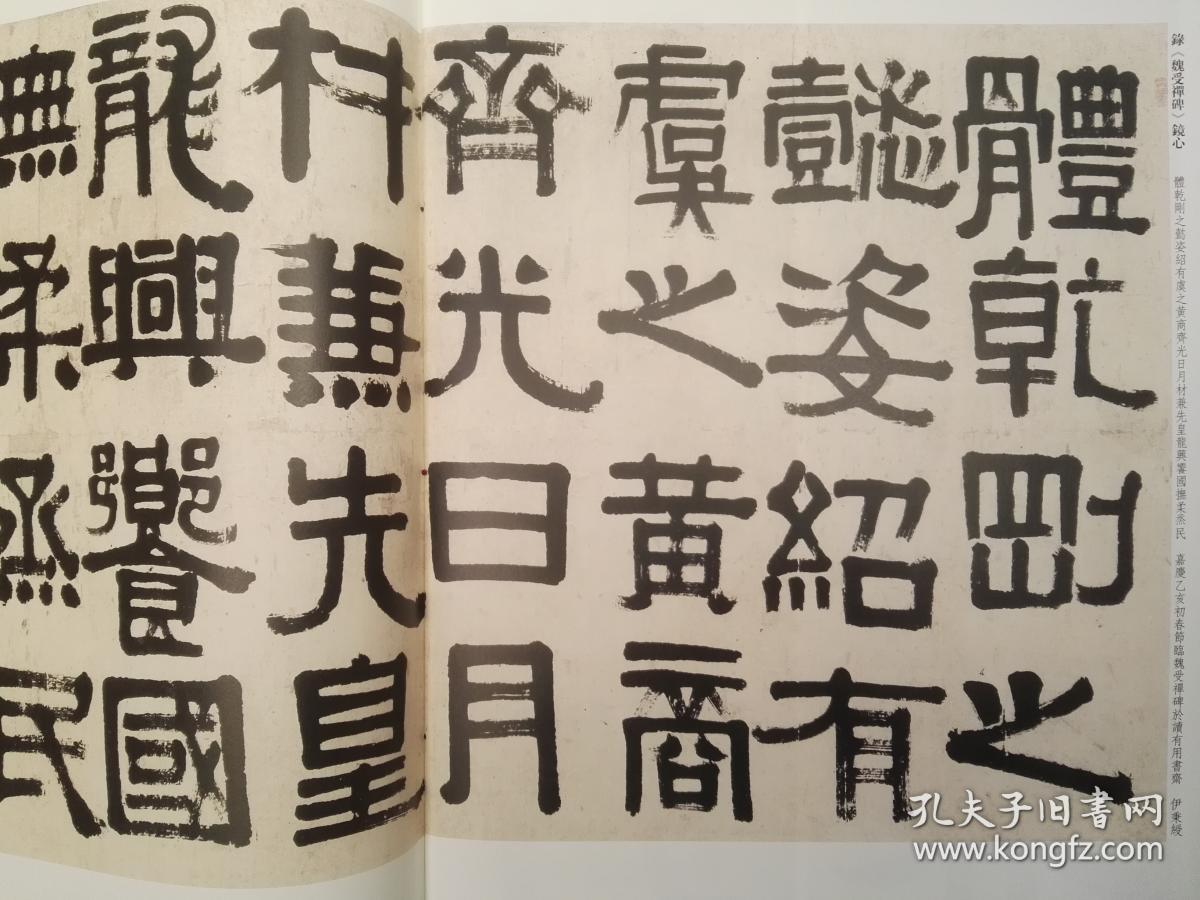 錄《魏受禪碑》鏡心
體乾剛之懿姿紹有虞之黄商齊光日月材兼先皇龍興饗國撫柔烝民 嘉慶乙亥初春節臨魏受禪碑於讀有用書齋 伊秉綬
體乾剛之
懿姿紹有
虞之黄商
齊光日月
材兼先皇
龍興饗國
無柔烝民
孔夫子旧书网
www.kongfz.com